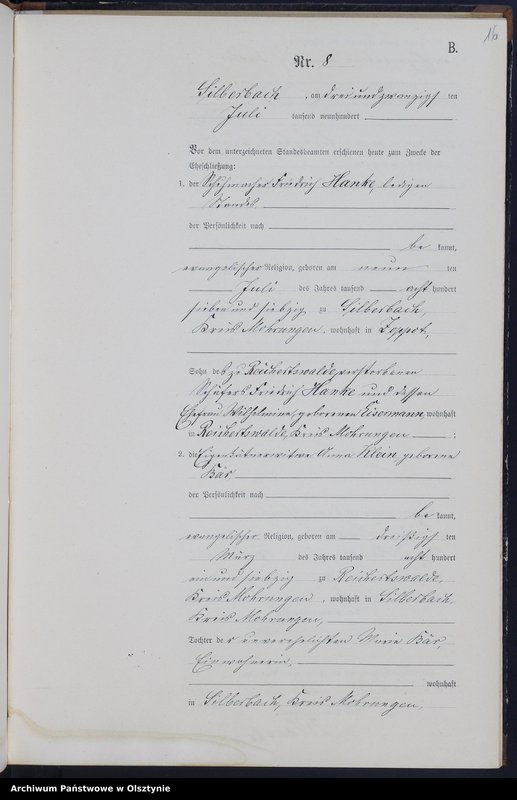 16
B.
Nr. 8
Silberbach, am dreiundzwanzigs ten
Juli tausend neunhundert
Vor dem unterzeichneten Standesbeamten erschienen heute zum Zwecke der
Eheschließung:
1. der Schuhmacher Friedrich Hanke, ledigen
Standes,
der Persönlichkeit nach
be kannt,
evangelischer Religion, geboren am neun ten
Juli des Jahres tausend acht hundert
sieben und siebzig, zu Silberbach,
Kreis Mohrungen, wohnhaft in Zoppot,
Sohn des zu Reichertswalde verstorbenen
Schäfers Friedrich Hanke und dessen
Ehefrau Wilhelmine, geborenen Eisermann, wohnhaft
in Reichertswalde, Kreis Mohrungen ;
2. die Eigenkätnerwitwe Anna Klein geborene
Bär,
der Persönlichkeit nach
be kannt,
evangelischer Religion, geboren am dreißigs ten
März des Jahres tausend acht hundert
ein und siebzig zu Reichertswalde,
Kreis Mohrungen, wohnhaft in Silberbach,
Kreis Mohrungen,
Tochter der unverehelichten Marie Bär,
Einwohnerin,
wohnhaft
in Silberbach, Kreis Mohrungen,
Archiwum Państwowe w Olsztynie